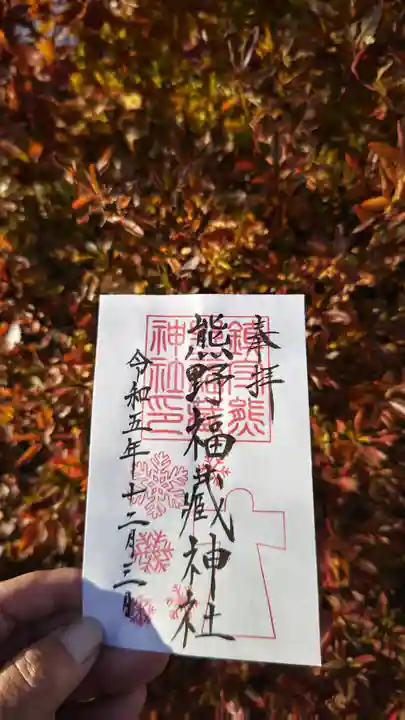 奉拝
熊野福藏神社
令和五年十二月三日
鎮守熊
神社印